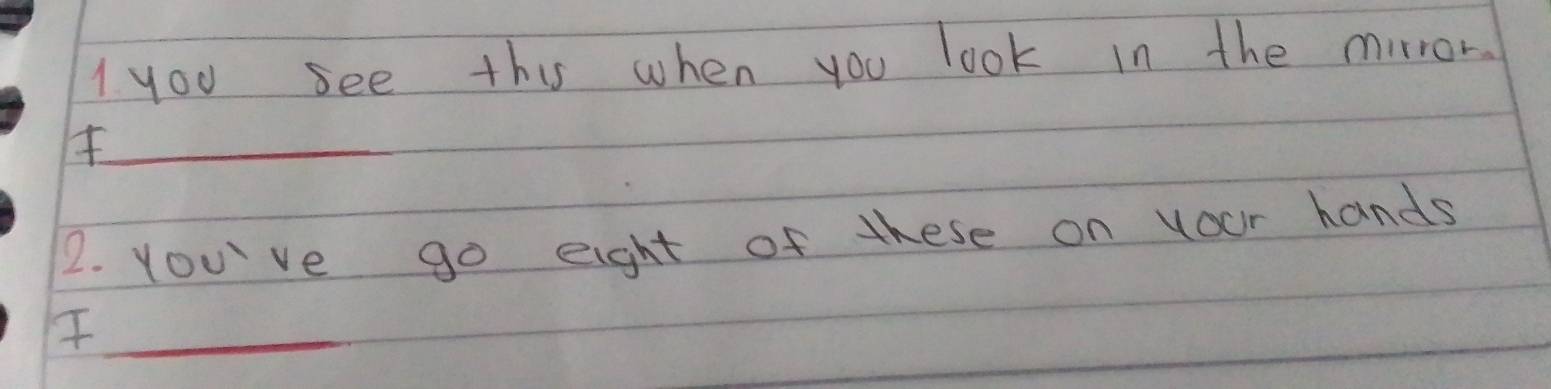 1. you see this when you look in the mirror.
F
2. You've go eight of these on your hands
F